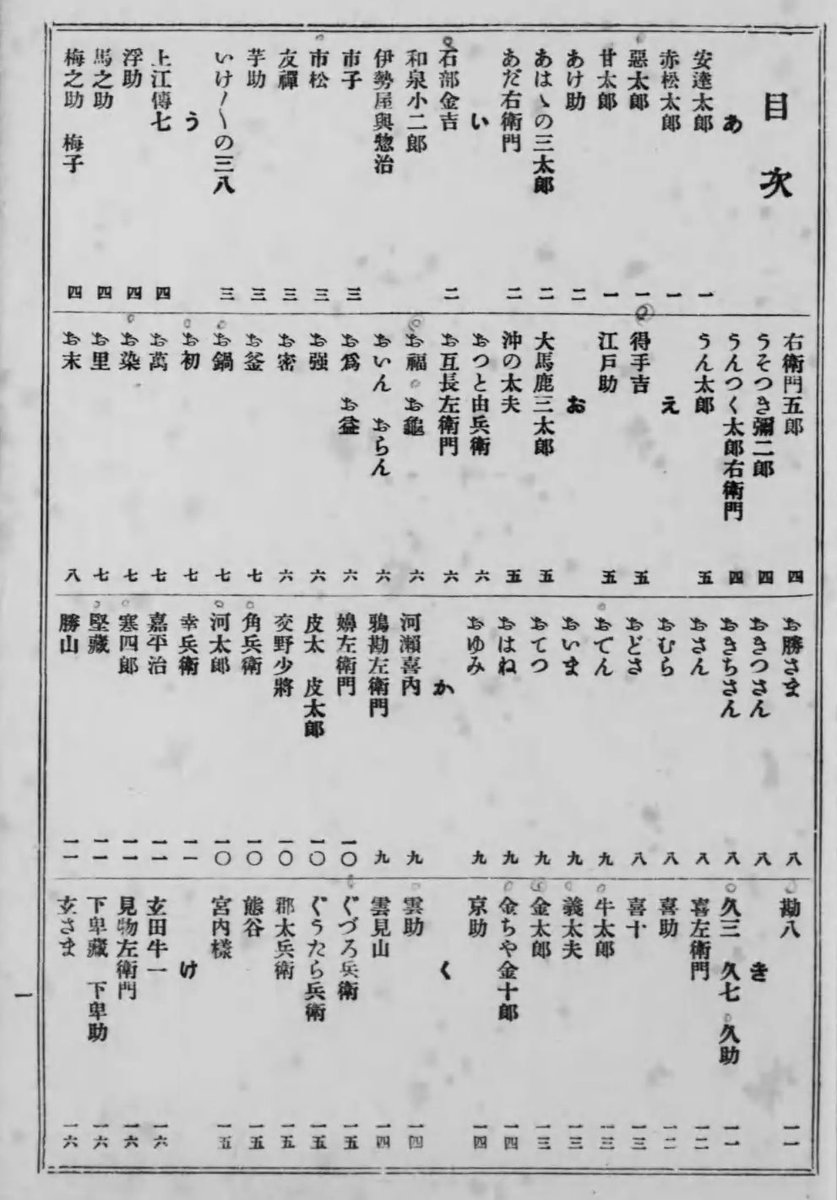 目次
あ
安達太郎 一
赤松太郎 一
惡太郎 一
甘太郎 一
あけ助 二
あはゝの三太郎 二
あだ右衛門 二
い
石部金吉 二
和泉小二郎
伊勢屋與惣治
市子 三
市松 三
友禪 三
芋助 三
いけ〳〵の三八 三
う
上江傳七 四
浮助 四
馬之助 四
梅之助 梅子 四
右衛門五郎 四
うそつき彌二郎 四
うんつく太郎右衛門 四
うん太郎 五
え
得手吉 五
江戸助 五
お
大馬鹿三太郎 五
沖の太夫 五
おつと由兵衛 六
お亙長左衛門 六
お福 お龜 六
おいん おらん 六
お爲 お益 六
お强 六
お密 六
お釜 七
お鍋 七
お初 七
お萬 七
お染 七
お里 七
お末 八
お勝さま 八
おきつさん 八
おきちさん 八
おさん 八
おむら 八
おどさ 八
おでん 九
おいま 九
おてつ 九
おはね 九
おゆみ 九
か
河瀬喜内 九
鴉勘左衛門 九
嬶左衛門 一〇
皮太 皮太郎 一〇
交野少將 一〇
角兵衛 一〇
河太郎 一〇
幸兵衛 一一
嘉平治 一一
寒四郎 一一
堅藏 一一
勝山 一一
勘八 一一
き
久三 久七 久助 一一
喜左衛門 一二
喜助 一二
喜十 一三
牛太郎 一三
義太夫 一三
金太郎 一三
金ちや金十郎 一四
京助 一四
く
雲助 一四
雲見山 一四
ぐづろ兵衛 一五
ぐうたら兵衛 一五
郡太兵衛 一五
熊谷 一五
宮内樣 一五
け
玄田牛一 一六
見物左衛門 一六
下卑藏 下卑助 一六
玄さま 一六
一